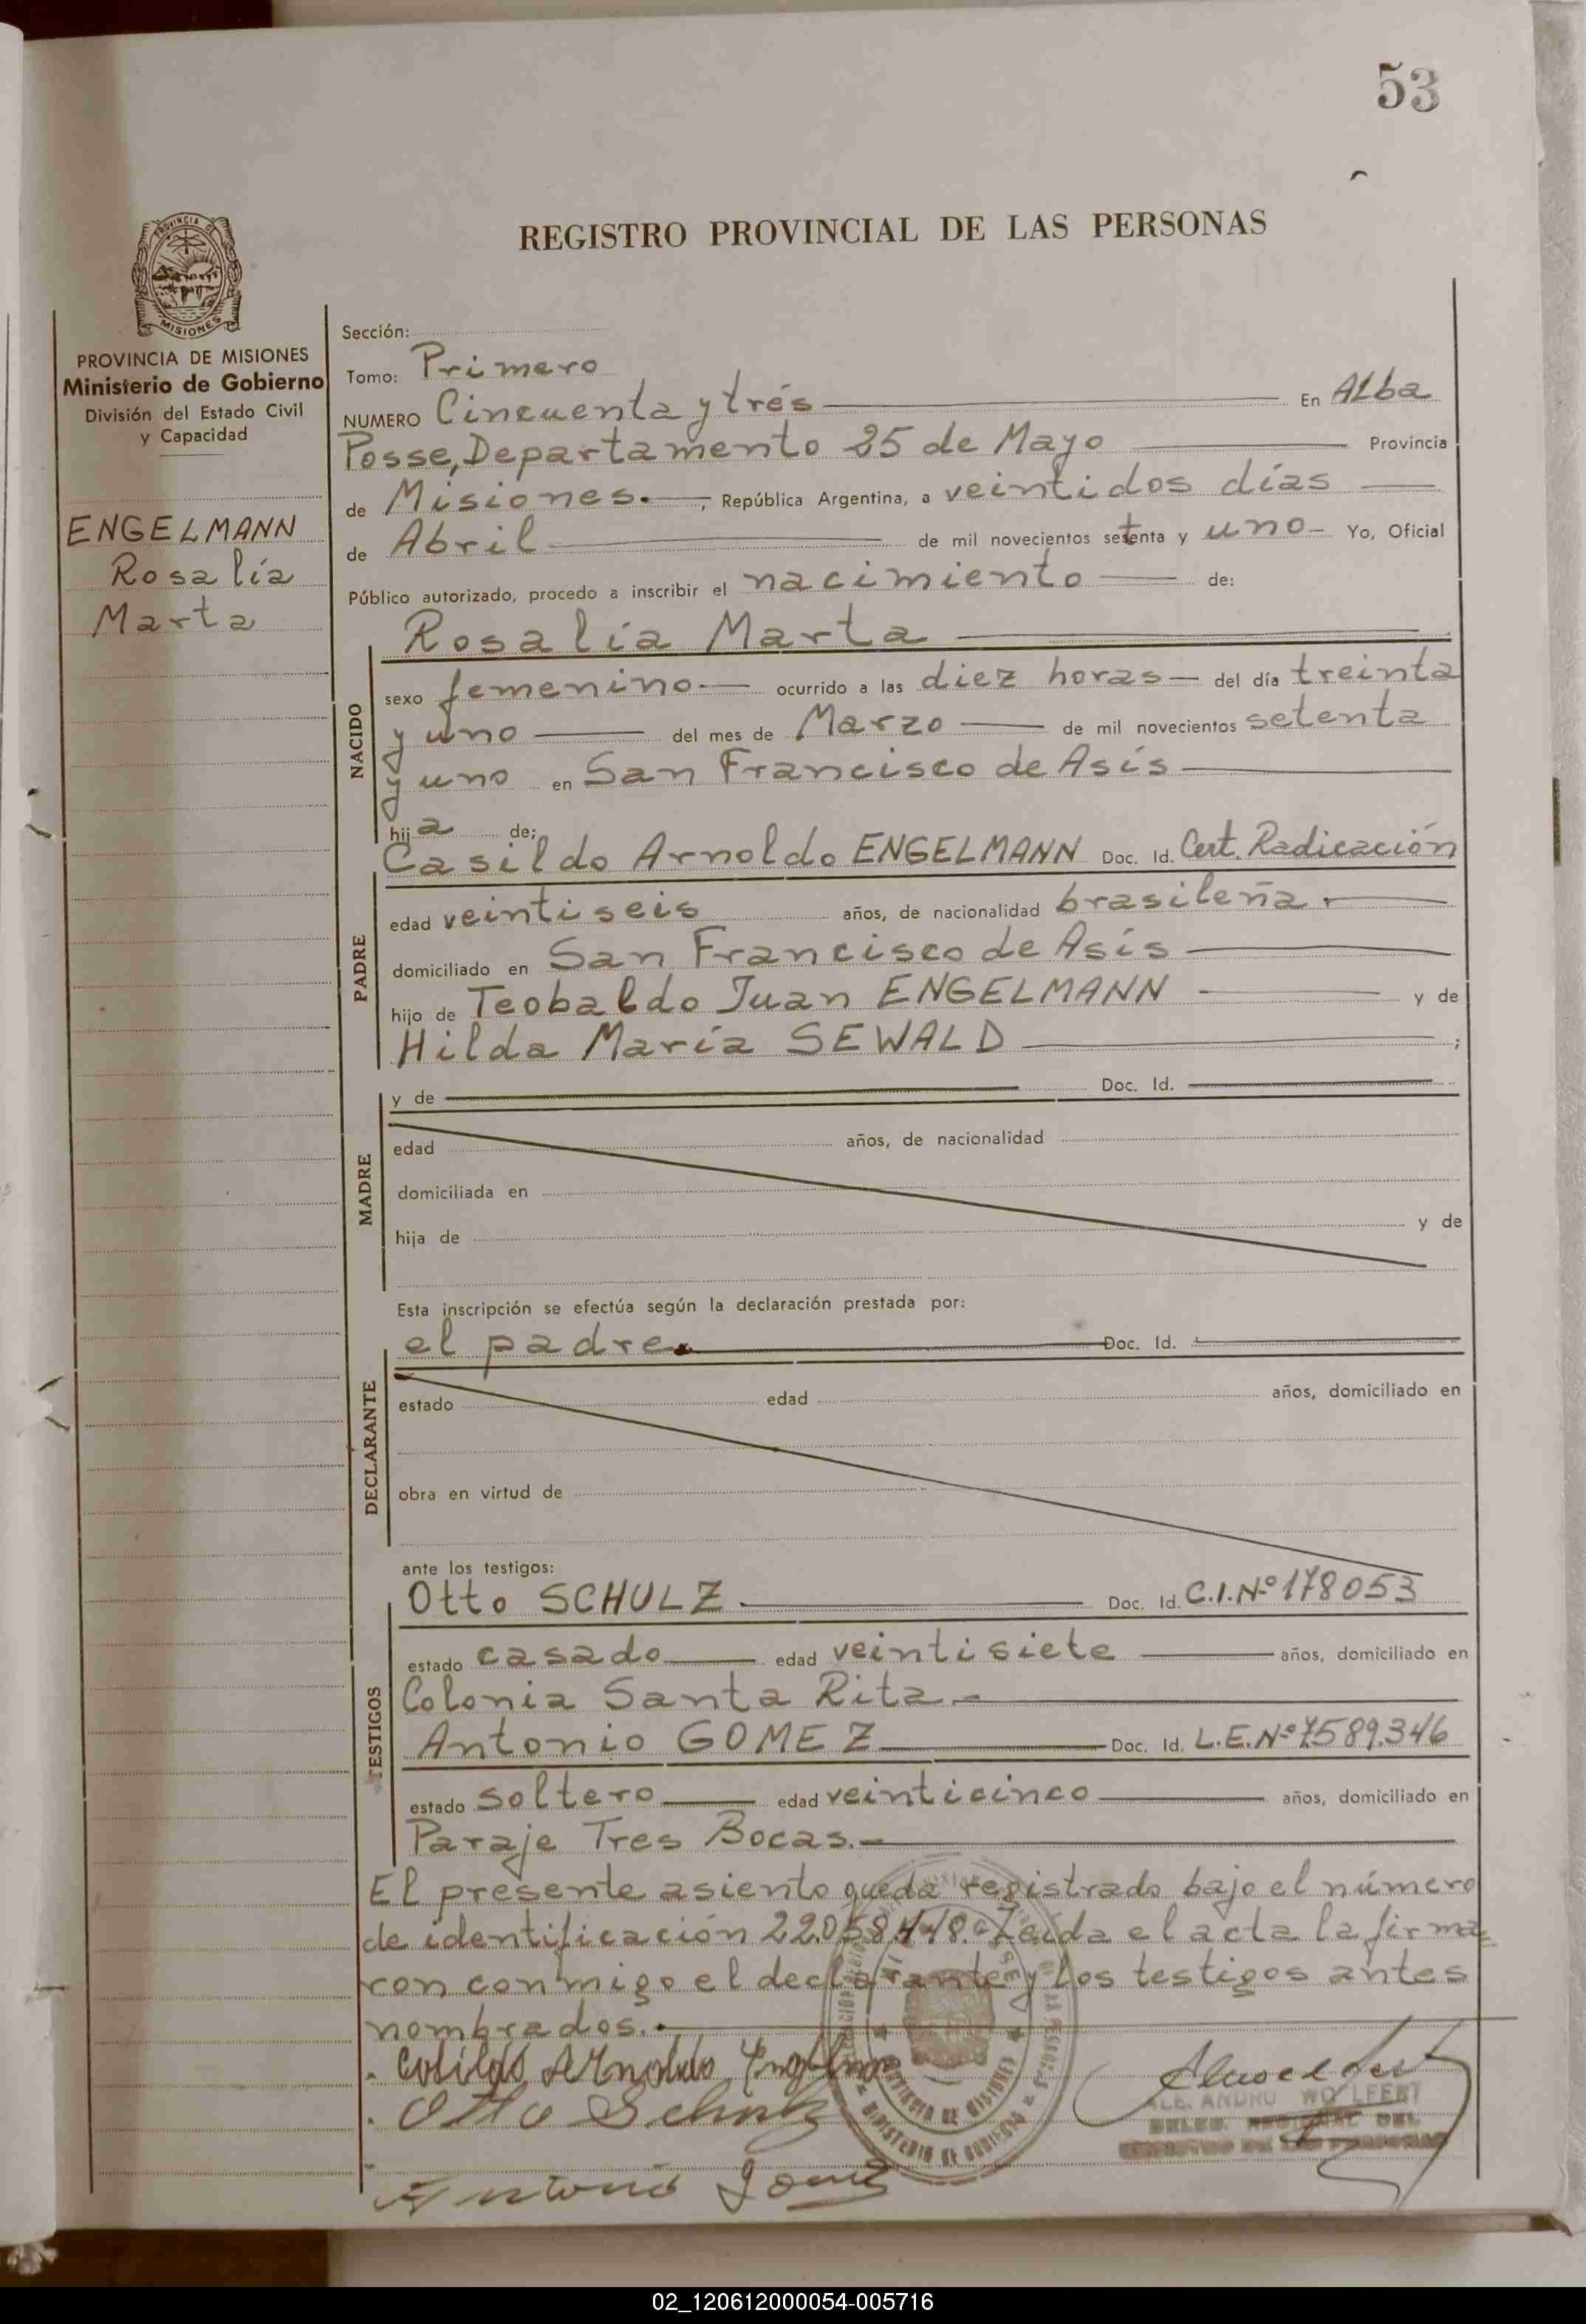 53
REGISTRO PROVINCIAL DE LAS PERSONAS
PROVINCIA DE
MISIONES
PROVINCIA DE MISIONES
Ministerio de Gobierno
División del Estado Civil
y Capacidad
ENGELMANN
Rosalía
Marta
Sección:
Tomo: Primero
NUMERO Cincuenta y trés En ALba
Posse, Departamento 25 de Mayo Provincia
de Misiones. , República Argentina, a veintidos días
de Abril de mil novecientos setenta y uno Yo, Oficial
Público autorizado, procedo a inscribir el nacimiento de:
NACIDO
Rosalía Marta
sexo femenino ocurrido a las diez horas del día treinta
y uno del mes de Marzo de mil novecientos setenta
y uno en San Francisco de Asís
hija de:
PADRE
Casildo Arnoldo ENGELMANN Doc. Id. Cert. Radicación
edad veintiseis años, de nacionalidad brasileña.
domiciliado en San Francisco de Asís
hijo de Teobaldo Juan ENGELMANN y de
Hilda María SEWALD ;
MADRE
y de Doc. Id.
edad años, de nacionalidad
domiciliada en
hija de y de
Esta inscripción se efectúa según la declaración prestada por:
DECLARANTE
el padre. Doc. Id.
estado edad años, domiciliado en
obra en virtud de
ante los testigos:
TESTIGOS
Otto SCHULZ Doc. Id. C.I.Nº 178053
estado casado edad veintisiete años, domiciliado en
Colonia Santa Rita.-
Antonio GOMEZ Doc. Id. L.E.Nº 7.589.346
estado soltero edad veinticinco años, domiciliado en
Paraje Tres Bocas.-
El presente asiento queda registrado bajo el número
de identificación 22.058.448.- Leída el acta la firma=
ron conmigo el declarante y los testigos antes
nombrados.-
Arnoldo
Otto Schulz
Antonio Gomez
PROVINCIA DE MISIONES
MINISTERIO DE GOBIERNO
ALEJANDRO WOLFERT
DELEG. REGIONAL DEL
REGISTRO DE LAS PERSONAS
02_120612000054-005716